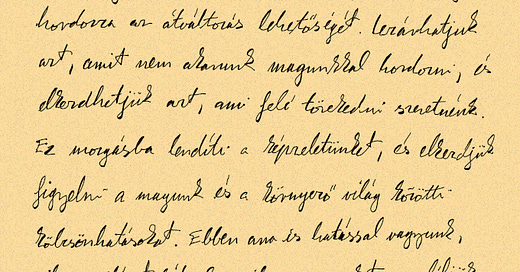 hordozza az átváltozás lehetőségét. Lezárhatjuk
azt, amit nem akarunk magunkkal hordozni, és
elkezdhetjük azt, ami felé törekedni szeretnénk.
Ez mozgásba lendíti a képzeletünket, és elkezdjük
figyelni a magunk és a környező világ közötti
kölcsönhatásokat. Ebben ana is hatással vagyunk,